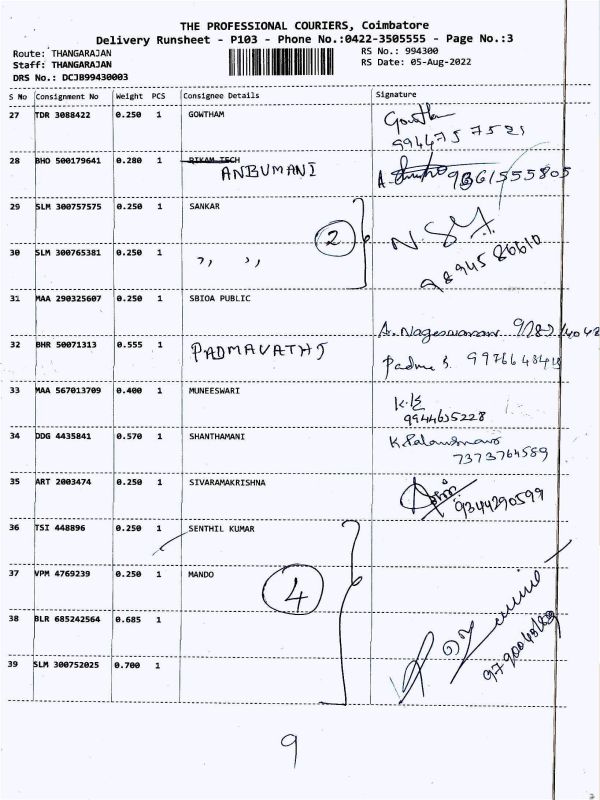 THE PROFESSIONAL COURIERS, Coimbatore
Delivery Runsheet - P103 - Phone No.:0422-3505555 - Page No.:3
Route: THANGARAJAN RS No.: 994300
Staff: THANGARAJAN RS Date: 05-Aug-2022
DRS No.: DCJB99430003
S No Consignment No Weight PCS Consignee Details Signature
27 TDR 3088422 0.250 1 GOWTHAM Gowtham
9944757521
28 BHO 500179641 0.280 1 BIKAM TECH
ANBUMANI 9361555805
29 SLM 300757575 0.250 1 SANKAR
2
30 SLM 300765381 0.250 1 ,, ,, 9894586610
31 MAA 290325607 0.250 1 SBIOA PUBLIC
A. Nageswaran
32 BHR 50071313 0.555 1 PADMAVATHI Padma S.
33 MAA 567013709 0.400 1 MUNEESWARI K.K
9944635228
34 DDG 4435841 0.570 1 SHANTHAMANI
7373764589
35 ART 2003474 0.250 1 SIVARAMAKRISHNA
9344290599
36 TSI 448896 0.250 1 SENTHIL KUMAR
37 VPM 4769239 0.250 1 MANDO
4
38 BLR 685242564 0.685 1
39 SLM 300752025 0.700 1
9